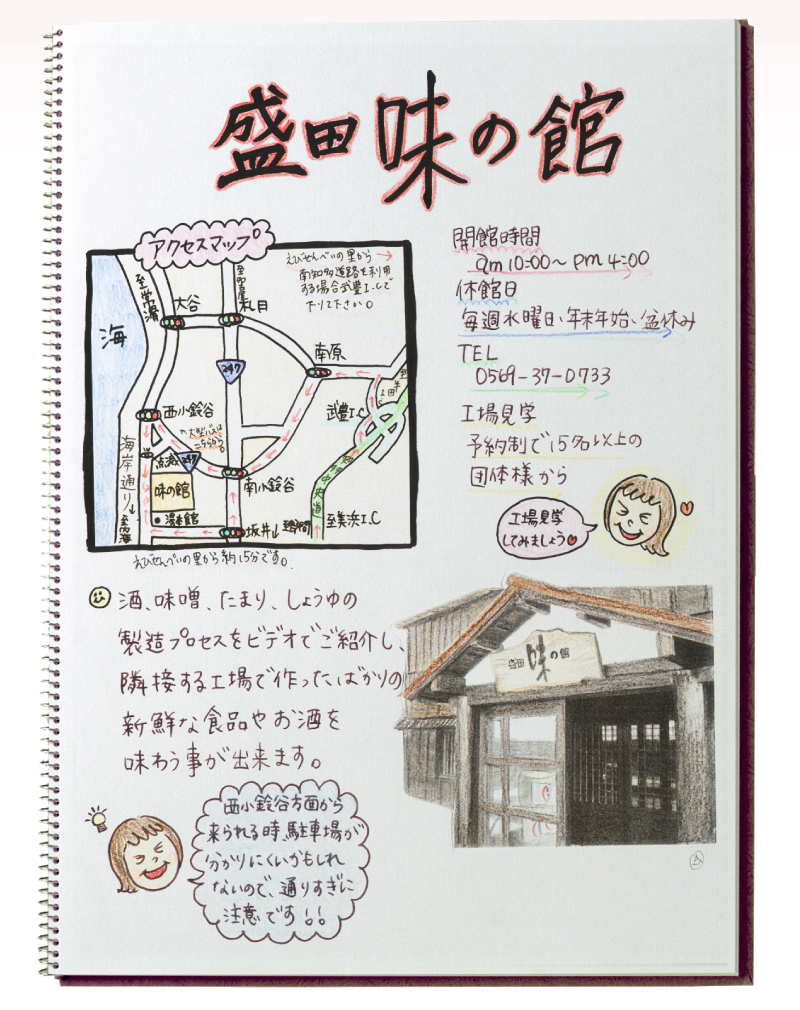 盛田味の館
アクセスマップ
えびせんべいの里から →
南知多道路を利用
する場合武豊I.Cで
下りて下さい。
至常滑
大谷
札目
海
247
南原
西小鈴谷
武豊I.C
海岸通り
至内海
247
味の館
南小鈴谷
坂井
至美浜I.C
えびせんべいの里から約15分です。
開館時間
am 10:00~ pm 4:00
休館日
毎週水曜日・年末年始、盆休み
TEL
0569-37-0733
工場見学
予約制で15名以上の
団体様から
工場見学
してみましょう
酒、味噌、たまり、しょうゆの
製造プロセスをビデオでご紹介し、
隣接する工場で作ったばかりの
新鮮な食品やお酒を
味わう事が出来ます。
盛田味の館
西小鈴谷方面から
来られる時、駐車場が
分かりにくいかもしれ
ないので、通りすぎに
注意です!!